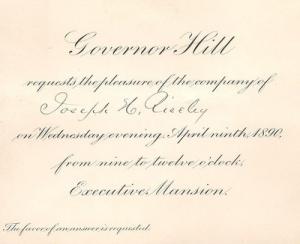 Governor Hill
requests the pleasure of the company of
Joseph H. Riseley
on Wednesday evening. April ninth 1890.
from nine to twelve o'clock.
Executive Mansion.
The favor of an answer is requested.